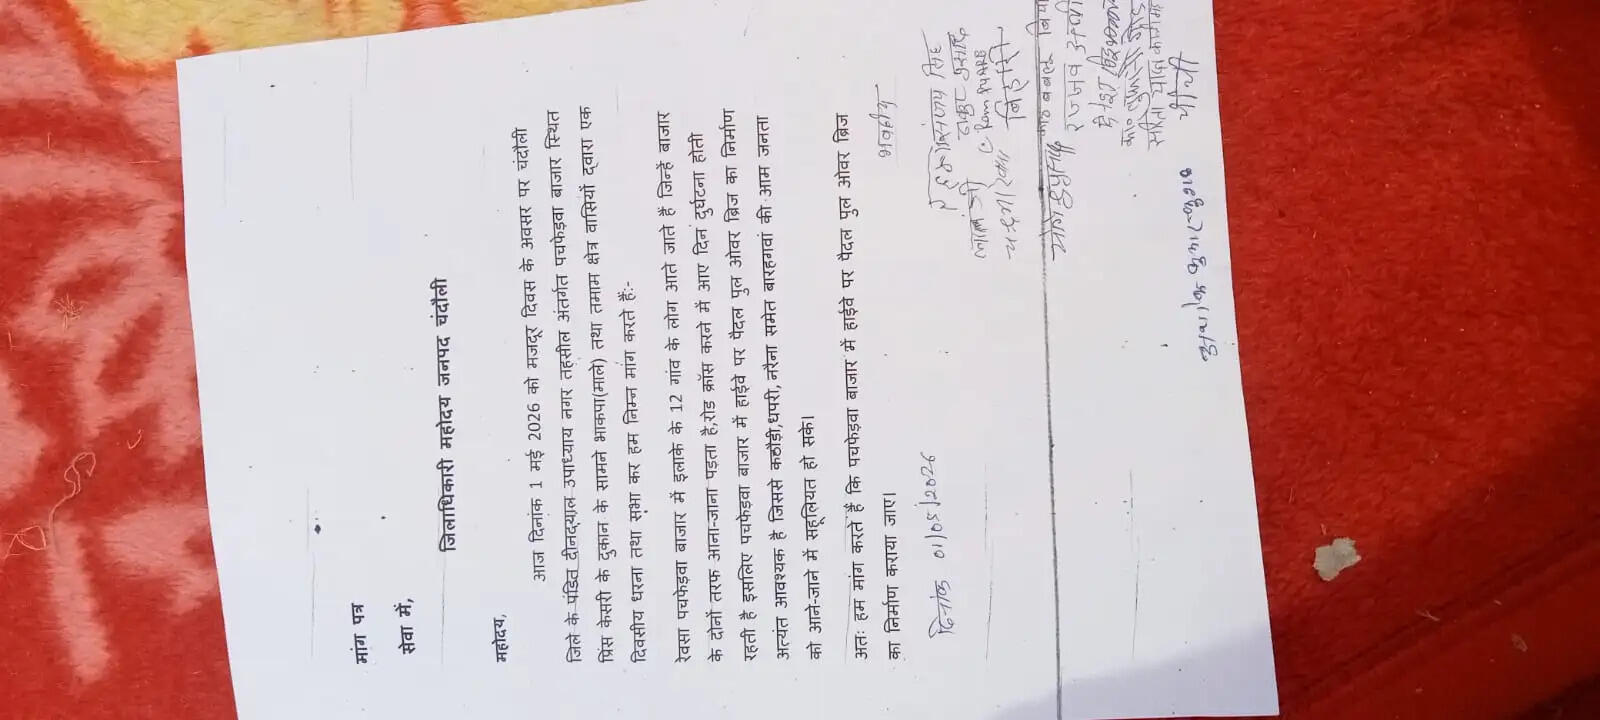 मांग पत्र
सेवा में,
जिलाधिकारी महोदय जनपद चंदौली
महोदय,
आज दिनांक 1 मई 2026 को मजदूर दिवस के अवसर पर चंदौली
जिले के पंडित दीनदयाल उपाध्याय नगर तहसील अंतर्गत पचफेड़वा बाजार स्थित
प्रिंस केसरी के दुकान के सामने भाकपा(माले) तथा तमाम क्षेत्र वासियों द्वारा एक
दिवसीय धरना तथा सभा कर हम निम्न मांग करते हैं:-
रेवसा पचफेड़वा बाजार में इलाके के 12 गांव के लोग आते जाते हैं जिन्हें बाजार
के दोनों तरफ आना-जाना पड़ता है,रोड क्रॉस करने में आए दिन दुर्घटना होती
रहती है इसलिए पचफेड़वा बाजार में हाईवे पर पैदल पुल ओवर ब्रिज का निर्माण
अत्यंत आवश्यक है जिससे कठौड़ी,धपरी, नरैना समेत बारहगवां की आम जनता
को आने-जाने में सहूलियत हो सके।
अतः हम मांग करते हैं कि पचफेड़वा बाजार में हाईवे पर पैदल पुल ओवर ब्रिज
का निर्माण कराया जाए।
भवदीय
दिनांक 01/05/2026
सिंह
ठाकुर प्रसाद
लालजी